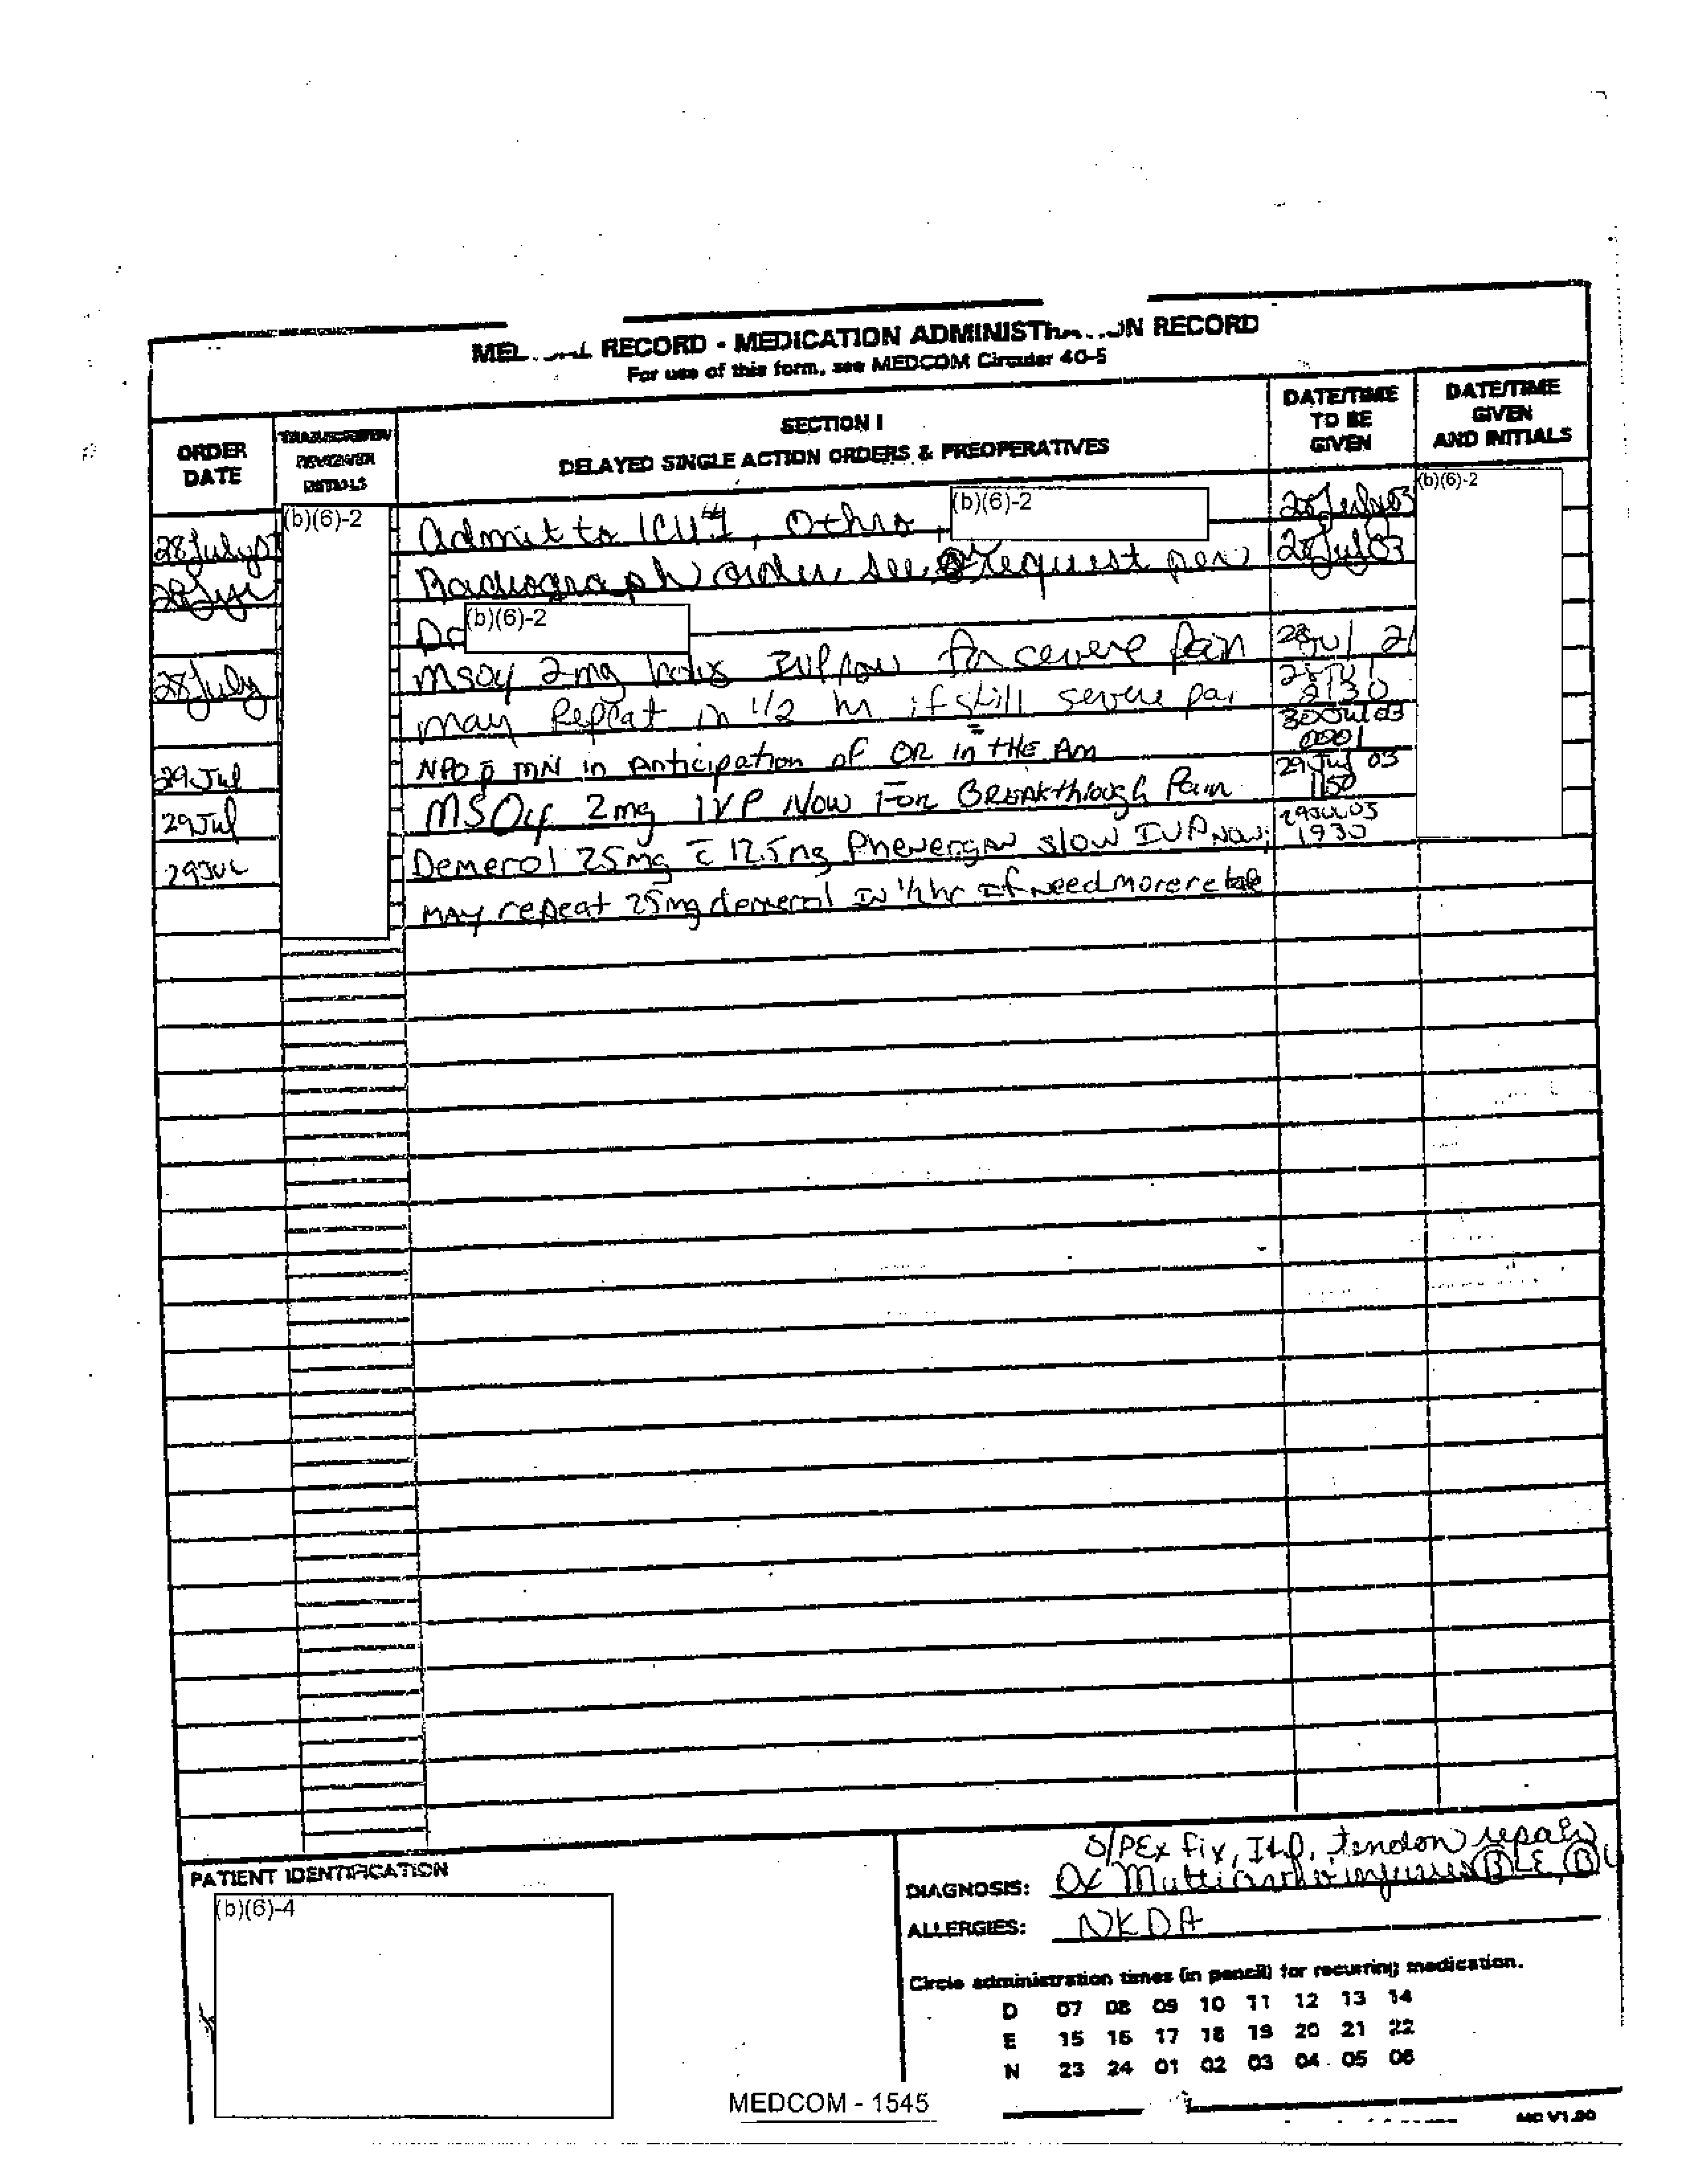 RECORD - MEDICATION ADMINISTRATION RECORD
For use of this form, see MEDCOM Circular 40-5
ORDER DATE
REVIEWER INITIALS
SECTION I
DELAYED SINGLE ACTION ORDERS & PREOPERATIVES
DATE/TIME TO BE GIVEN
DATE/TIME GIVEN AND INITIALS
28 July 03 (b)(6)-2 Admit to ICU #1, Otho, (b)(6)-2 28 July 03 (b)(6)-2
Radiograph order, see request per 28 Jul 03
Dr (b)(6)-2
28 July MSO4 2mg IVP now for severe pain 28 Jul 21
may Repeat in 1/2 hr if still severe pai 28 Jul 2130
29 Jul NPO p MN in Anticipation of OR in THE AM 30 Jul 03 0001
29 Jul MSO4 2mg IVP Now For Breakthrough Pain 29 Jul 03 1150
29 JUL Demerol 25mg c 12.5mg Phenergan slow IVP NOW; 29 JUL 03 1930
MAY repeat 25mg demerol IN 1/2 hr if need more
PATIENT IDENTIFICATION
(b)(6)-4
S/P Ex fix, I+D, tendon repair
DIAGNOSIS: Dx Multi ortho injuries (B) LE, (B) U
ALLERGIES: NKDA
Circle administration times (in pencil) for recurring medication.
D 07 08 09 10 11 12 13 14
E 15 16 17 18 19 20 21 22
N 23 24 01 02 03 04 05 06
MEDCOM - 1545
MC V1.00